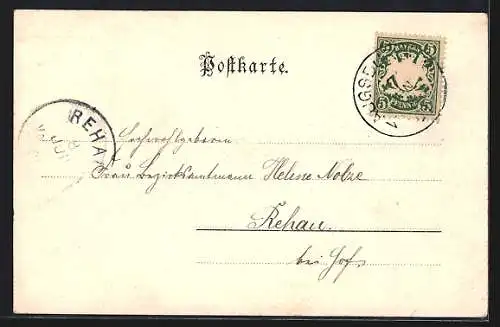 Postkarte.
BAYERN
5 5
5 PFENNIG 5
REHAU
8 JUN
Hochwohlgeboren
Frau Bezirksamtmann Helene Nolze
Rehau.
bei Hof.